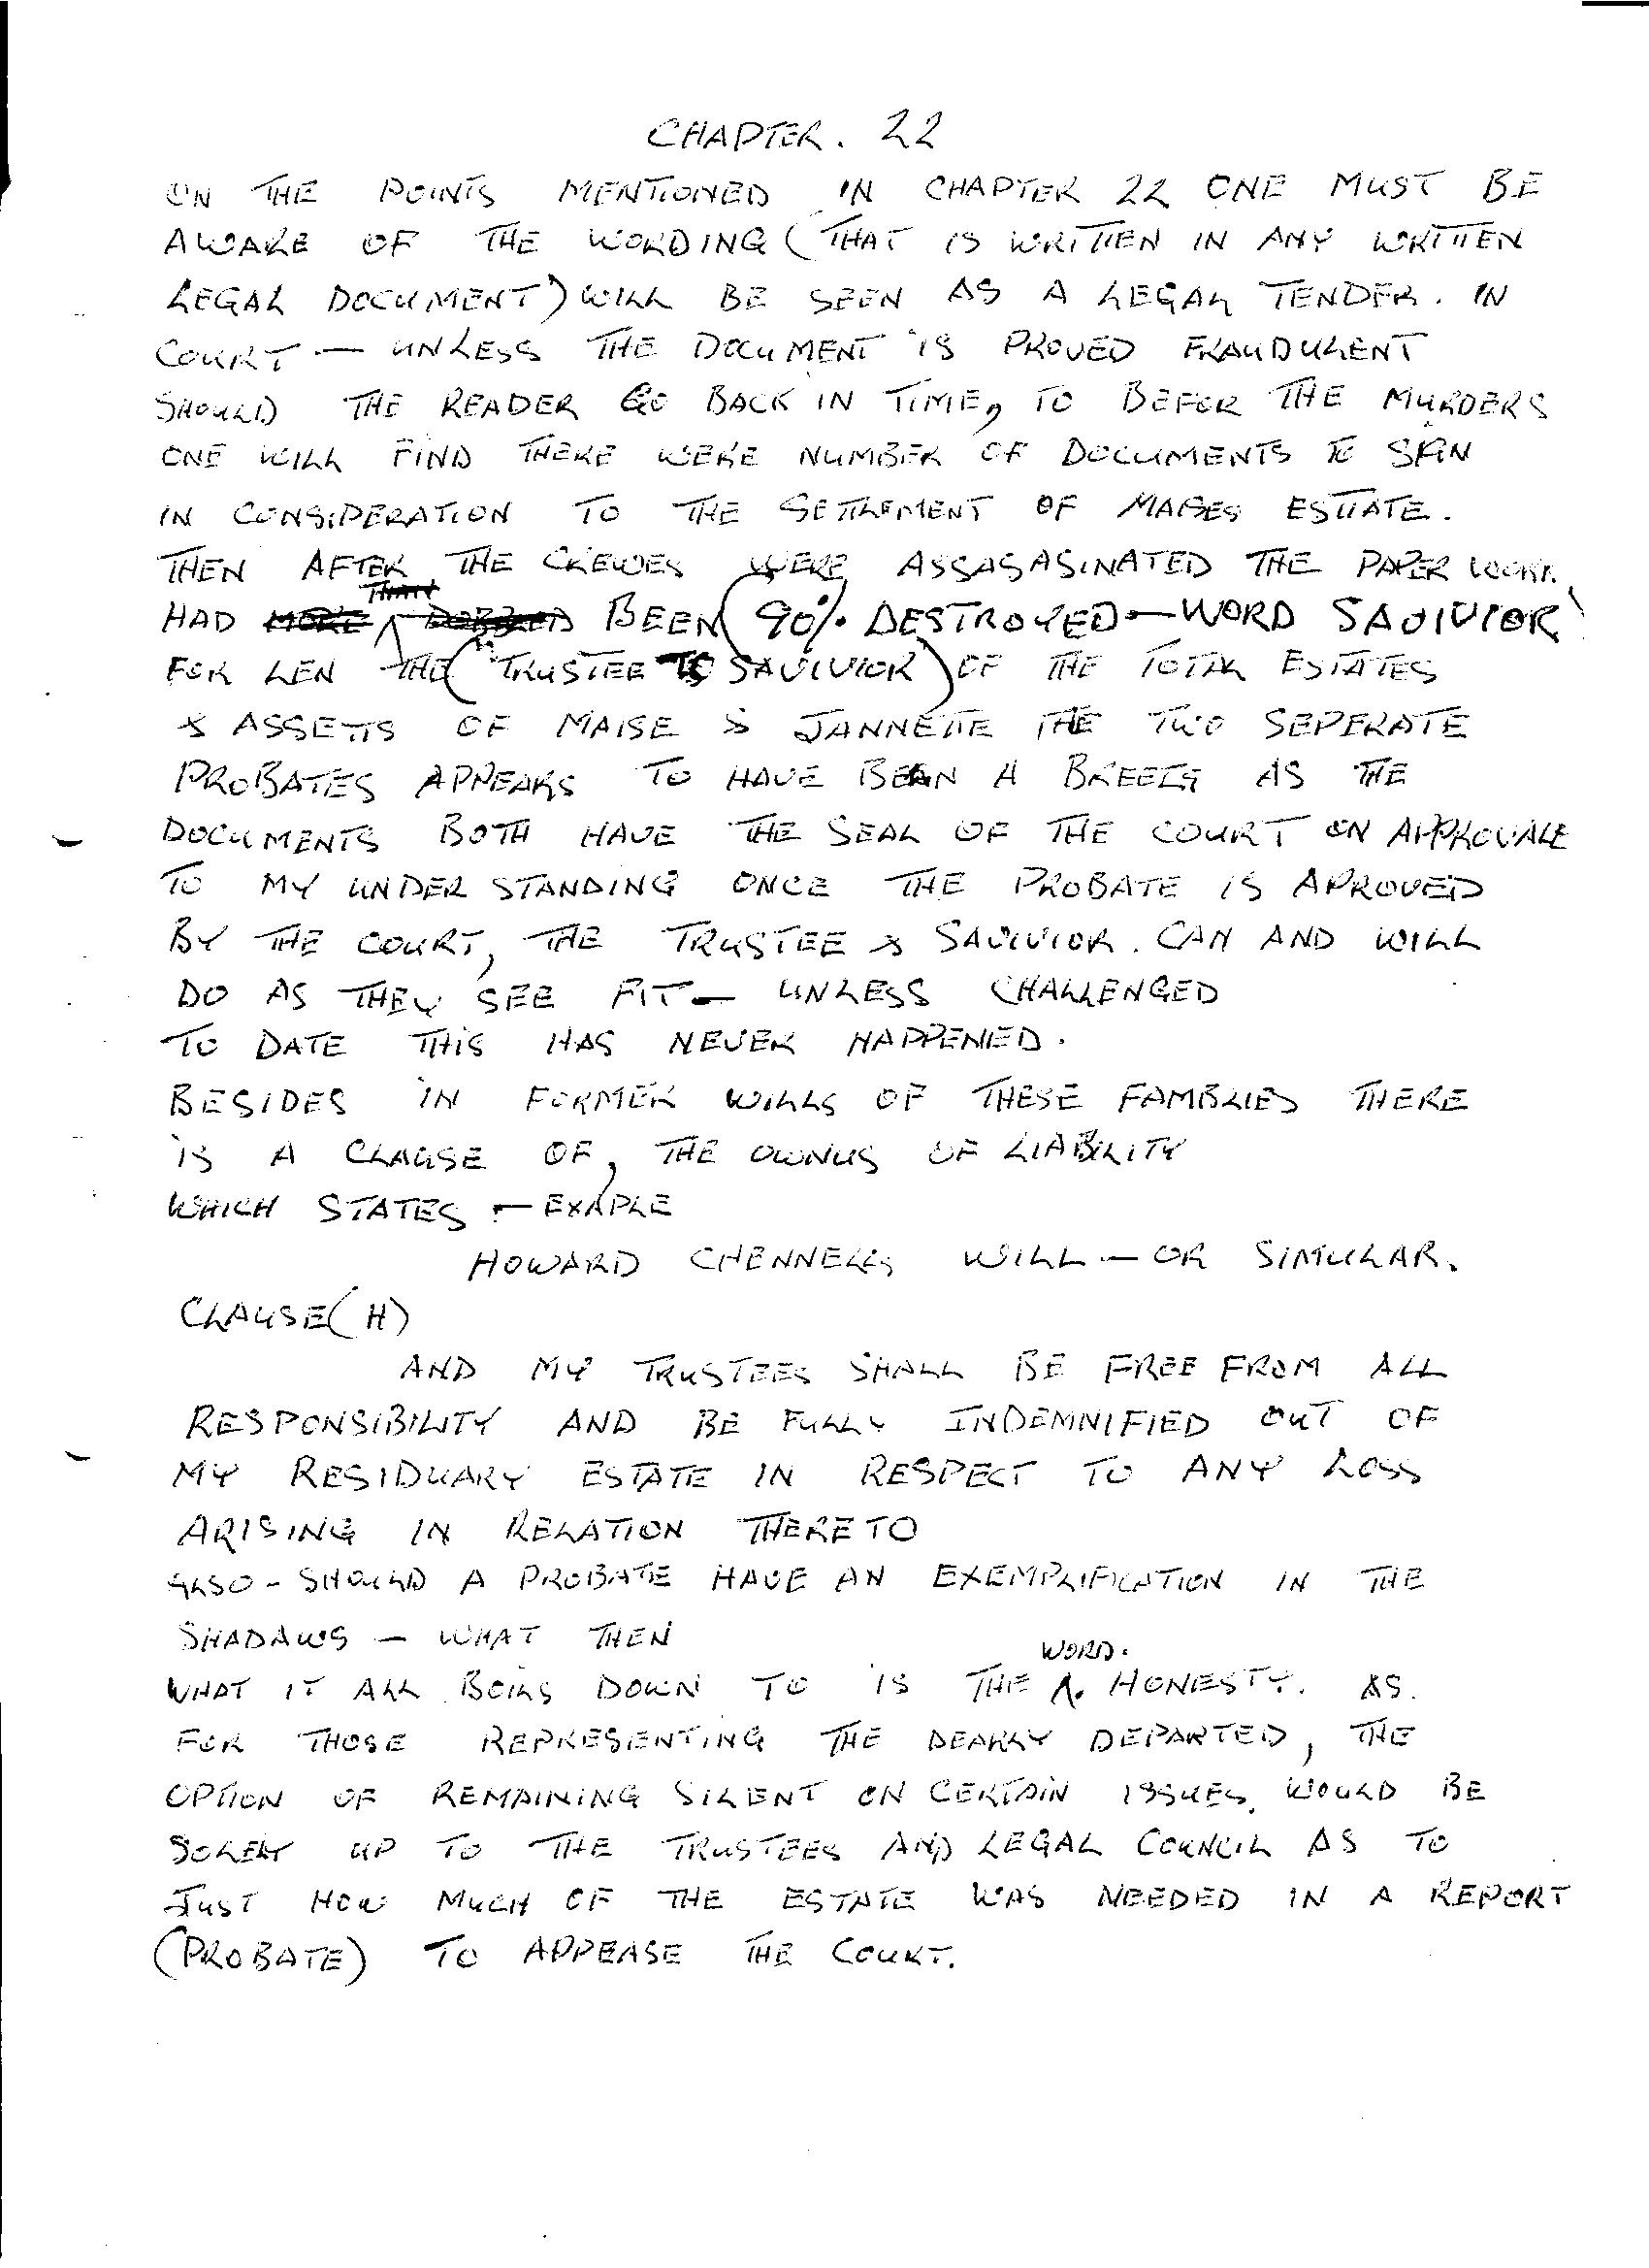 CHAPTER. 22
ON THE POINTS MENTIONED IN CHAPTER 22 ONE MUST BE
AWARE OF THE WORDING (THAT IS WRITTEN IN ANY WRITTEN
LEGAL DOCUMENT) WILL BE SEEN AS A LEGAL TENDER. IN
COURT — UNLESS THE DOCUMENT IS PROVED FRAUDULENT
SHOULD THE READER GO BACK IN TIME, TO BEFOR THE MURDERS
ONE WILL FIND THERE WERE NUMBER OF DOCUMENTS TO SIGN
IN CONSIDERATION TO THE SETTLEMENT OF MAISES ESTATE.
THEN AFTER THE CREWES WERE ASSASASINATED THE PAPER WORK
HAD BEEN (90% DESTROYED — WORD SAVIVIOR
FOR LEN THE ("TRUSTEE TO SAVIVIOR) OF THE TOTAL ESTATES
& ASSETTS OF MAISE & JANNETTE THE TWO SEPERATE
PROBATES APPEARS TO HAVE BEAN A BREECH AS THE
DOCUMENTS BOTH HAVE THE SEAL OF THE COURT ON APPROVALE
TO MY UNDER STANDING ONCE THE PROBATE IS APROVED
BY THE COURT, THE TRUSTEE & SAVIVIOR. CAN AND WILL
DO AS THEY SEE FIT — UNLESS CHALLENGED
TO DATE THIS HAS NEVER HAPPENED.
BESIDES IN FORMER WILLS OF THESE FAMBLIES THERE
IS A CLAUSE OF, THE OWNUS OF LIABILITY
WHICH STATES — EXAPLE
HOWARD CHENNELLS WILL — OR SIMULAR.
CLAUSE (H)
AND MY TRUSTEES SHALL BE FREE FROM ALL
RESPONSIBILITY AND BE FULLY INDEMNIFIED OUT OF
MY RESIDUARY ESTATE IN RESPECT TO ANY LOSS
ARISING IN RELATION THERETO
ALSO - SHOULD A PROBATE HAVE AN EXEMPLIFICATION IN THE
SHADAWS — WHAT THEN
WHAT IT ALL BOILS DOWN TO IS THE WORD. HONESTY. AS.
FOR THOSE REPRESENTING THE DEARLY DEPARTED, THE
OPTION OF REMAINING SILENT ON CERTAIN ISSUES, WOULD BE
SOLELY UP TO THE TRUSTEES AND LEGAL COUNCIL AS TO
JUST HOW MUCH OF THE ESTATE WAS NEEDED IN A REPORT
(PROBATE) TO APPEASE THE COURT.